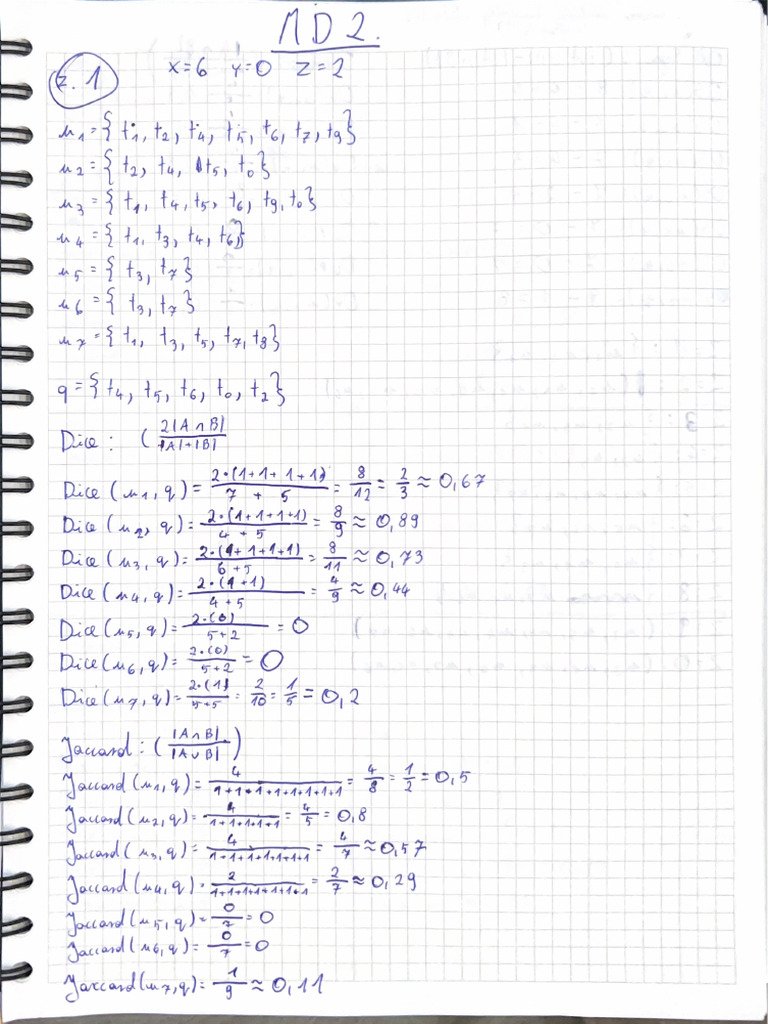 MD2.
z. 1 x=6 y=0 z=2
u1={ t1, t2, t4, t5, t6, t7, t9}
u2={ t2, t4, t5, t0}
u3={ t1, t4, t5, t6, t9, t0}
u4={ t1, t3, t4, t6}
u5={ t3, t7}
u6={ t3, t7}
u7={ t1, t3, t5, t7, t8}
q={t4, t5, t6, t0, t2}
Dice: ( 2|A∩B| / |A|+|B|
Dice (u1, q) = 2·(1+1+1+1) / 7 + 5 = 8/12 = 2/3 ≈ 0,67
Dice (u2, q) = 2·(1+1+1+1) / 4+5 = 8/9 ≈ 0,89
Dice (u3, q) = 2·(1+1+1+1) / 6+5 = 8/11 ≈ 0,73
Dice (u4, q) = 2·(1+1) / 4+5 = 4/9 ≈ 0,44
Dice (u5, q) = 2·(0) / 5+2 = 0
Dice (u6, q) = 2·(0) / 5+2 = 0
Dice (u7, q) = 2·(1) / 5+5 = 2/10 = 1/5 = 0,2
Jaccard: ( |A∩B| / |A∪B| )
Jaccard (u1, q) = 4 / 1+1+1+1+1+1+1+1 = 4/8 = 1/2 = 0,5
Jaccard (u2, q) = 4 / 1+1+1+1+1 = 4/5 = 0,8
Jaccard (u3, q) = 4 / 1+1+1+1+1+1+1 = 4/7 ≈ 0,57
Jaccard (u4, q) = 2 / 1+1+1+1+1+1+1 = 2/7 ≈ 0,29
Jaccard (u5, q) = 0/7 = 0
Jaccard (u6, q) = 0/7 = 0
Jaccard (u7, q) = 1/9 ≈ 0,11